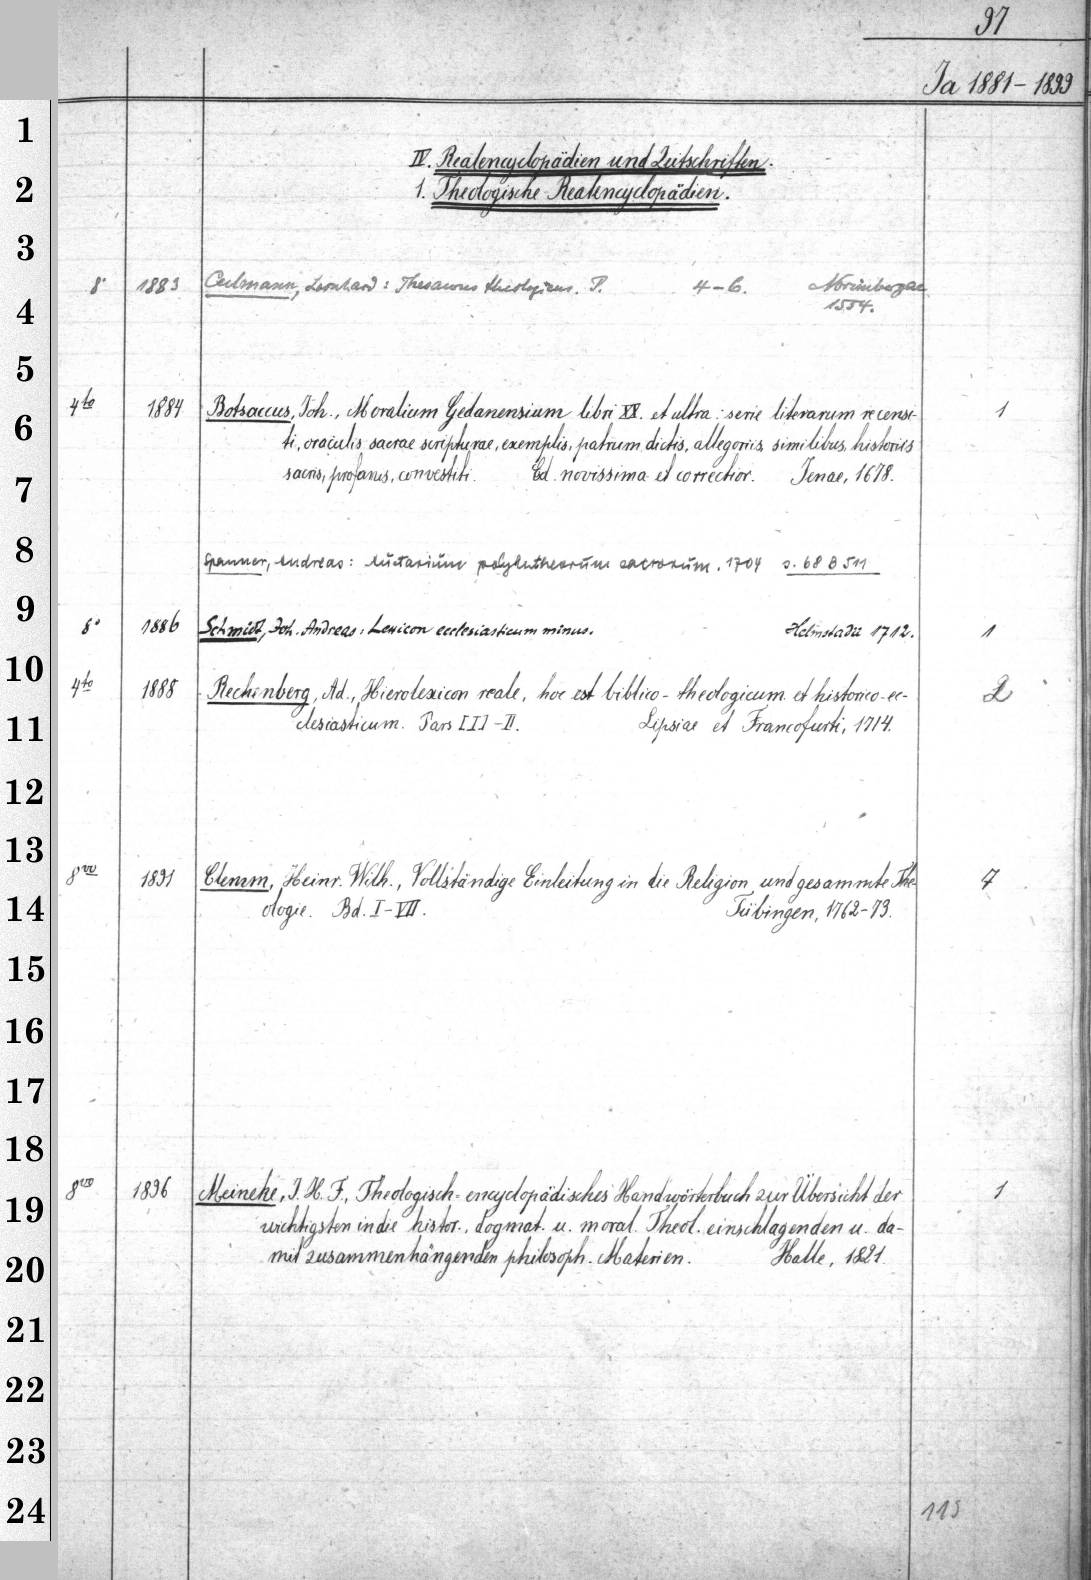 97
Ia 1881-1899
1
IV. Realencyclopädien und Zeitschriften.
2
1. Theologische Realencyclopädien.
3
8° 1883 Culmann, Leonhard: Thesaurus theologicus. P. 4-6. Norimbergae
4
1554.
5
6
4to 1884 Botsaccus, Joh., Moralium Gedanensium libri XX. et ultra: serie literarum recensi- 1
ti, oraculis sacrae scripturae, exemplis, patrum dictis, allegoriis, similibus, historiis
7
sacris, profanis, convestiti. Ed. novissima et correctior. Jenae, 1678.
8
Spanner, Andreas: Auctarium polyantheorum sacrorum. 1704 s. 68 B 511
9
8° 1886 Schmidt, Joh. Andreas: Lexicon ecclesiasticum minus. Helmstadii 1712. 1
10
4to 1888 Rechenberg, Ad., Hierolexicon reale, hoc est biblico-theologicum et historico-ec- 2
11
clesiasticum. Pars [I]-II. Lipsiae et Francofurti, 1714.
12
13
8vo 1891 Clemm, Heinr. Wilh., Vollständige Einleitung in die Religion und gesammte The- 7
14
ologie. Bd. I-VII. Tübingen, 1762-73.
15
16
17
18
8vo 1896 Meineke, J. H. F., Theologisch-encyclopädisches Handwörterbuch zur Übersicht der 1
19
wichtigsten in die histor., dogmat. u. moral. Theol. einschlagenden u. da-
20
mit zusammenhängenden philosoph. Materien. Halle, 1821.
21
22
23
24
115